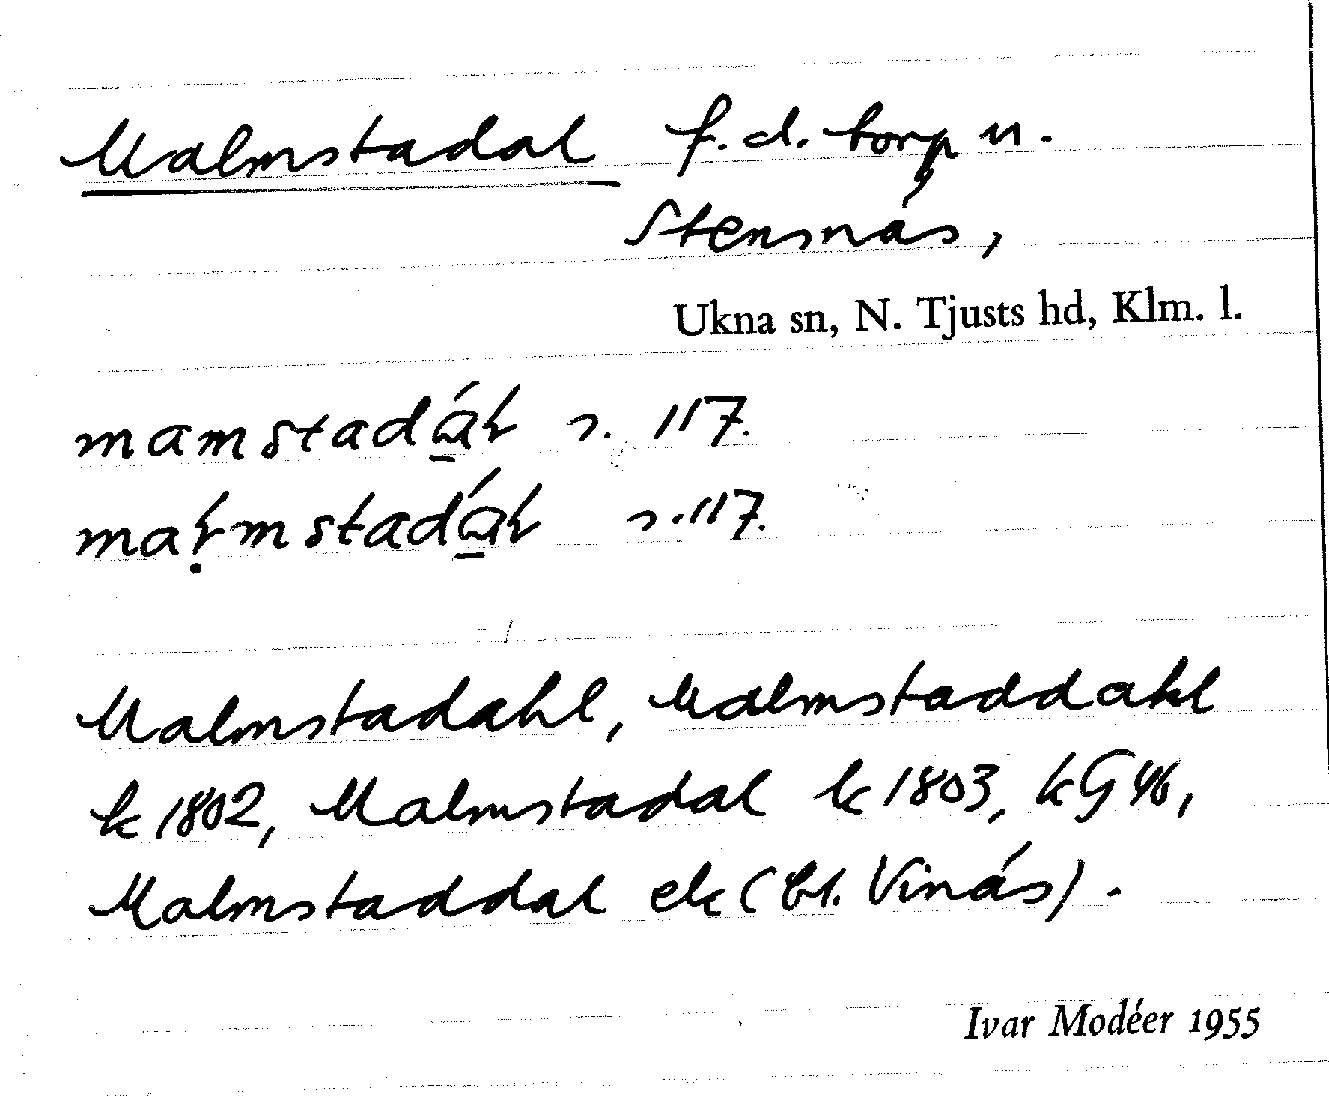 Malmstadal f.d. torp u.
Stensnäs,
Ukna sn, N. Tjusts hd, Klm. l.
mamstadɑ́ɽ r. 117.
maɽmstadɑ́ɽ r. 117.
Malmstadahl, Malmstaddahl
k 1802, Malmstadal k 1803, kG 46,
Malmstaddal ek (bl. Vinäs).
Ivar Modéer 1955